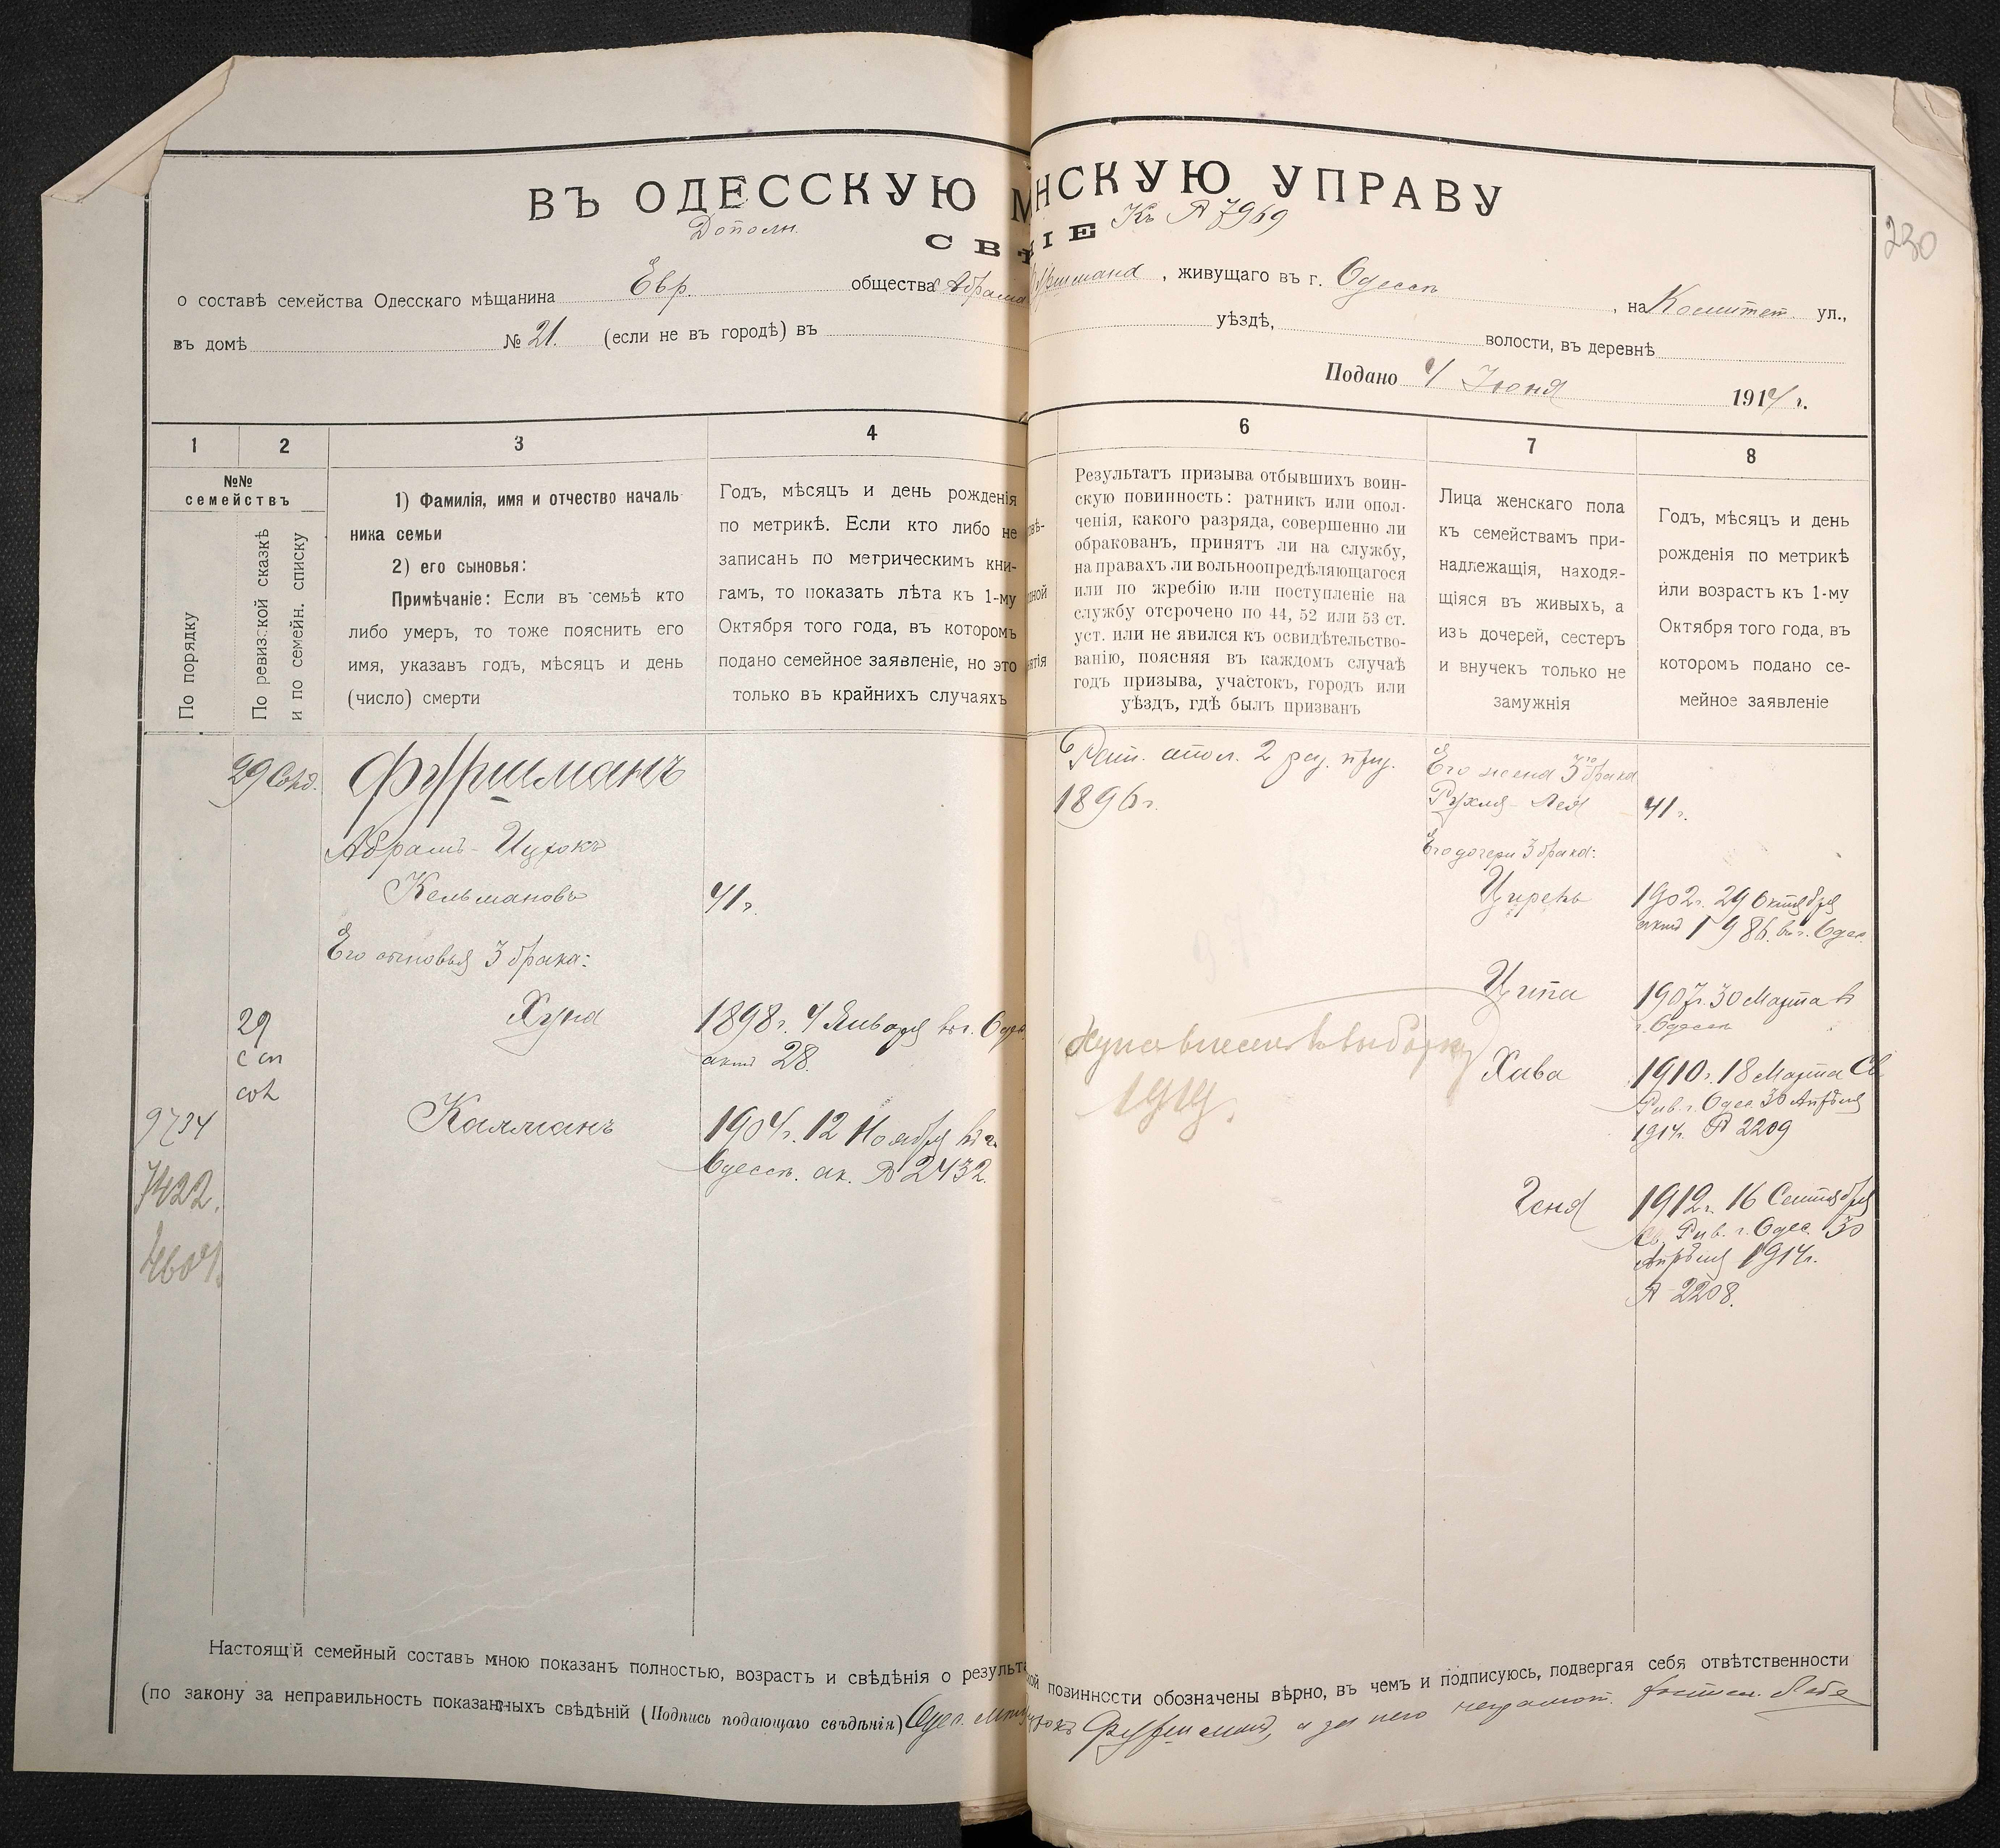 ВЪ ОДЕССКУЮ М НСКУЮ УПРАВУ
Дополн. Къ № 7969
СВѢ НІЕ
230
о составѣ семейства Одесскаго мѣщанина Евр. общества Абрама Фуршмана, живущаго въ г. Одессѣ, на Комитет. ул.,
въ домѣ № 21. (если не въ городѣ) въ уѣздѣ, волости, въ деревнѣ
Подано 4 Июня 1914 г.
1 2 3 4 6 7 8
№№
семействъ
По порядку
По ревизской сказкѣ
и по семейн. списку
1) Фамилія, имя и отчество началь
ника семьи
2) его сыновья:
Примѣчаніе: Если въ семьѣ кто
либо умеръ, то тоже пояснить его
имя, указавъ годъ, мѣсяцъ и день
(число) смерти
Годъ, мѣсяцъ и день рожденія
по метрикѣ. Если кто либо не
записанъ по метрическимъ кни-
гамъ, то показать лѣта къ 1-му
Октября того года, въ которомъ
подано семейное заявленіе, но это
только въ крайнихъ случаяхъ
Результатъ призыва отбывшихъ воин-
скую повинность: ратникъ или опол-
ченія, какого разряда, совершенно ли
обракованъ, принятъ ли на службу,
на правахъ ли вольноопредѣляющагося
или по жребію или поступленіе на
службу отсрочено по 44, 52 или 53 ст.
уст. или не явился къ освидѣтельство-
ванію, поясняя въ каждомъ случаѣ
годъ призыва, участокъ, городъ или
уѣздъ, гдѣ былъ призванъ
Лица женскаго пола
къ семействамъ при-
надлежащія, находя-
щіяся въ живыхъ, а
изъ дочерей, сестеръ
и внучекъ только не
замужнія
Годъ, мѣсяцъ и день
рожденія по метрикѣ
или возрастъ къ 1-му
Октября того года, въ
которомъ подано се-
мейное заявленіе
29
Фуршманъ
Абрамъ-Ицхокъ
Кельмановъ
41 г.
Его сыновья 3 брака:
Хуна
1898 г. 4 Января въ г. Одес
актъ 28.
29
9734
Калманъ
1904 г. 12 Ноября въ г.
Одессѣ. ак. № 2432.
7422.
4604.
Рат. опол. 2 раз. приз.
1896 г.
Хуна внесенъ въ выборку
1919.
Его жена 3го брака
Рухля-Лея
41 г.
Его дочери 3 брака:
Цирень
1902 г. 29 Октября
актъ 1986. въ г. Одес.
Ципа
1907 г. 30 Марта въ
г. Одессѣ
Хава
1910 г. 18 Марта Св.
Рав. г. Одес. 30 Апрѣля
1914 г. № 2209
Геня
1912 г. 16 Сентября
Св. Рав. г. Одес. 30
Апрѣля 1914 г.
№ 2208.
Настоящій семейный составъ мною показанъ полностью, возрастъ и свѣдѣнія о результа ной повинности обозначены вѣрно, въ чемъ и подписуюсь, подвергая себя отвѣтственности
(по закону за неправильность показанныхъ свѣдѣній (Подпись подающаго свѣдѣнія) Одес. Фуршманъ, а за него неграмот.